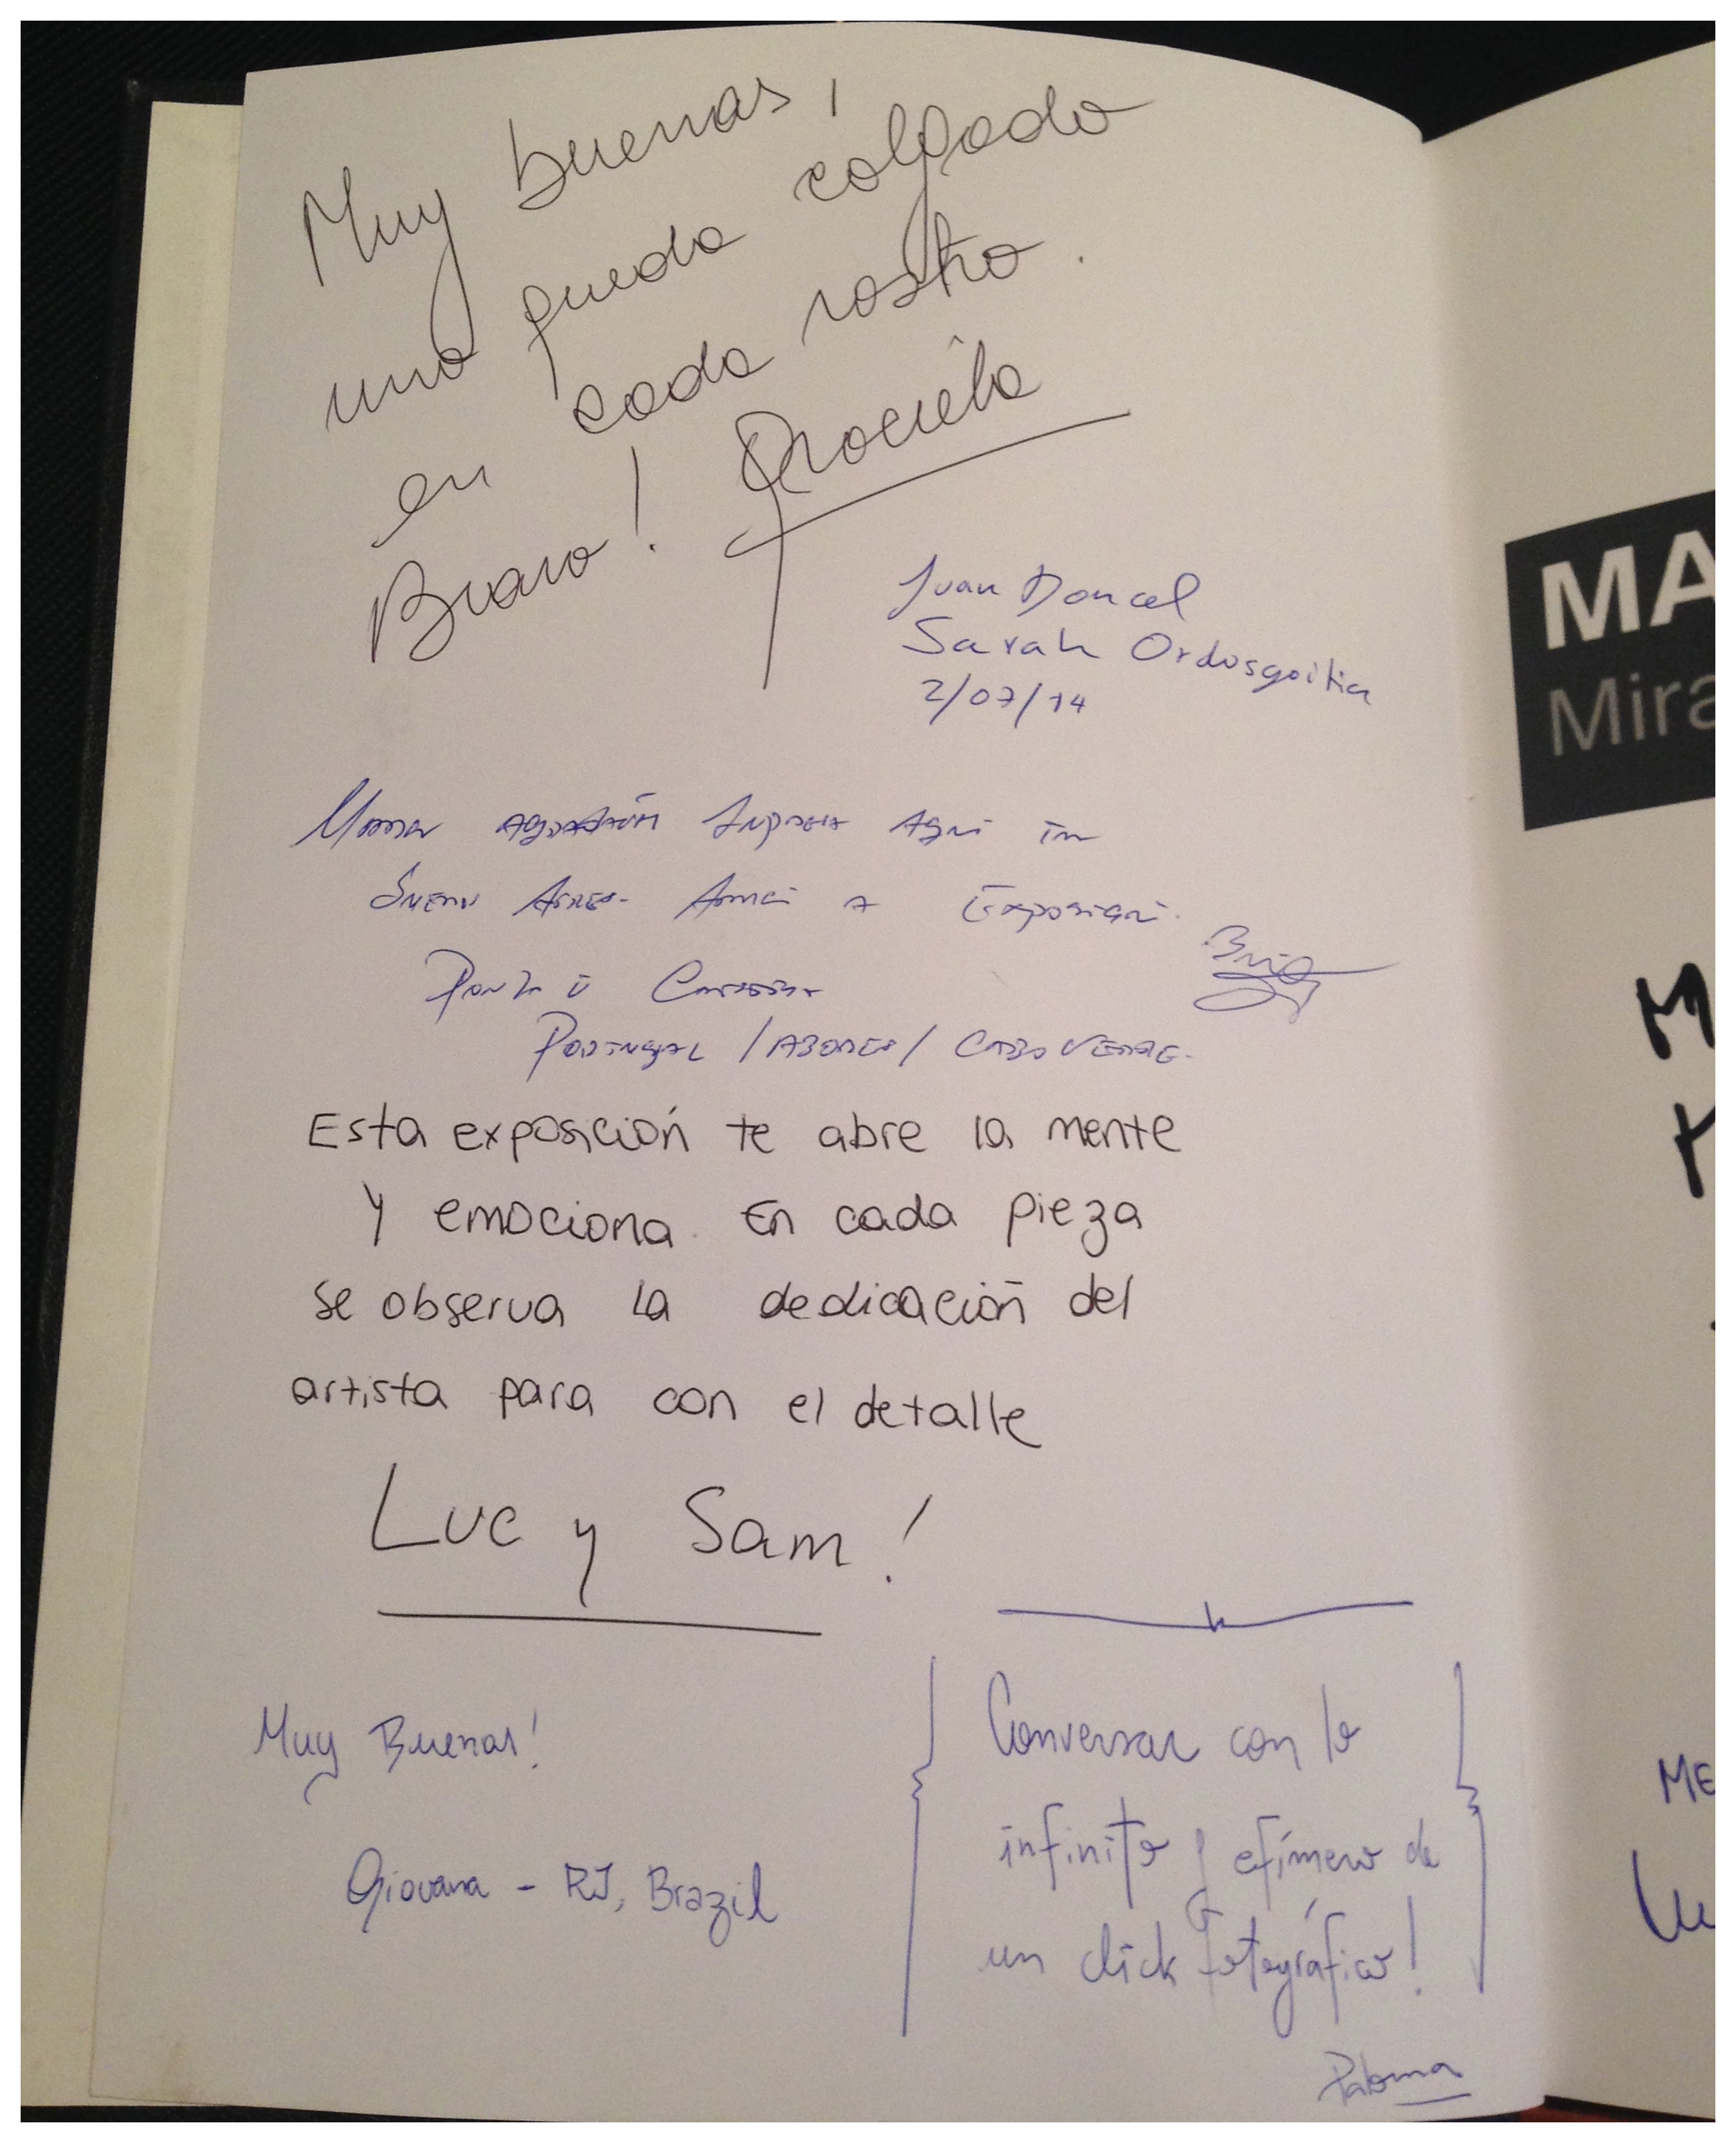 Muy buenas,
uno queda colgado
en cada rostro.
Bravo! Graciela
Juan Doncel
Sarah Ordosgoitia
2/07/14
Aqui in
A Exposicari.
Portugal / Abores / Cabo Verde.
Esta exposición te abre la mente
y emociona. En cada pieza
se observa la dedicación del
artista para con el detalle
Luc y Sam!
Muy Buenas!
Giovana - RJ, Brazil
Conversar con lo
infinito y efímero de
un click fotográfico!
Paloma
MA
Mira
M
ME